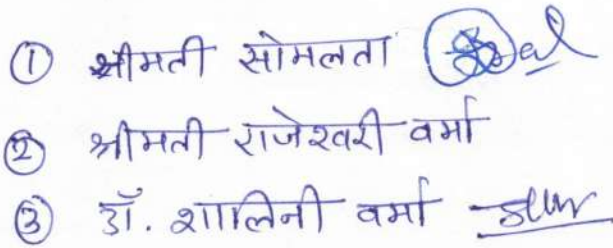 ① श्रीमती सोमलता
② श्रीमती राजेश्वरी वर्मा
③ डॉ. शालिनी वर्मा